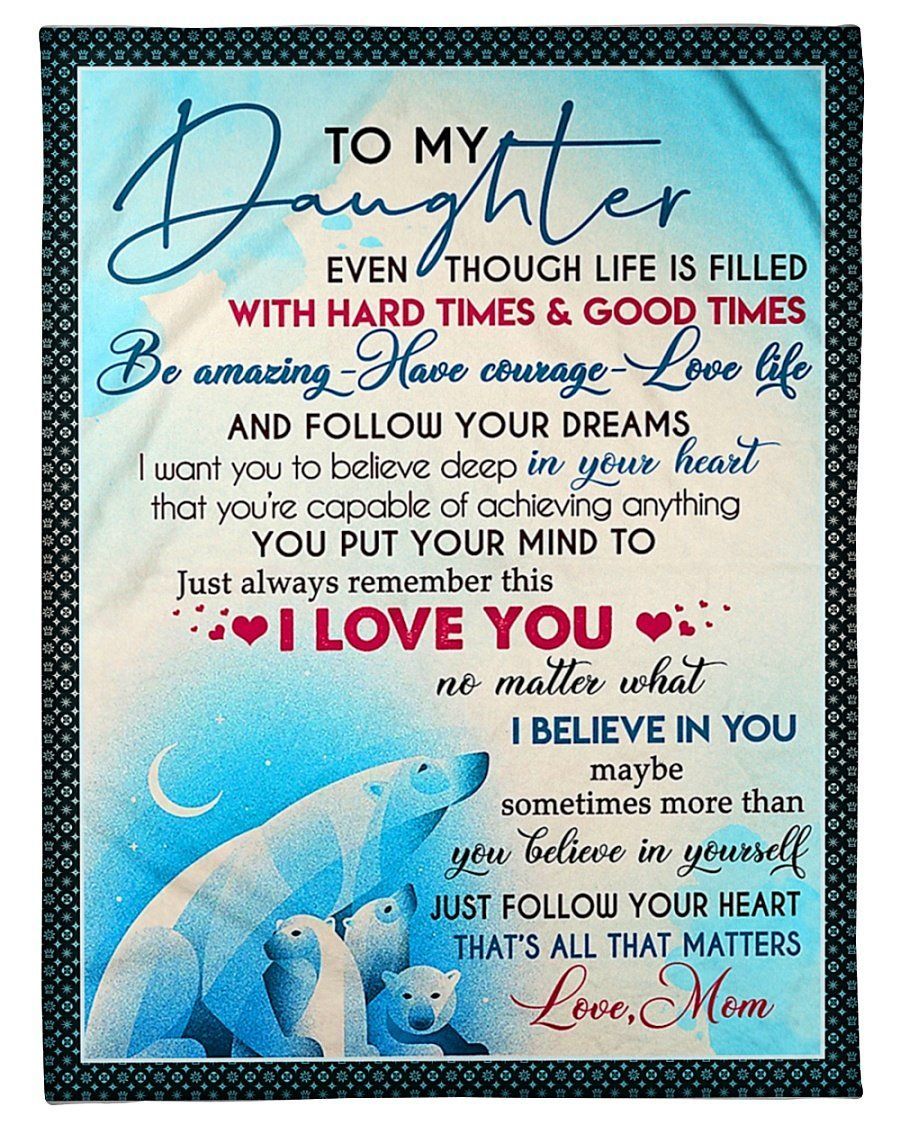 TO MY
Daughter
EVEN THOUGH LIFE IS FILLED
WITH HARD TIMES & GOOD TIMES
Be amazing - Have courage - Love life
AND FOLLOW YOUR DREAMS
I want you to believe deep in your heart
that you're capable of achieving anything
YOU PUT YOUR MIND TO
Just always remember this
I LOVE YOU
no matter what
I BELIEVE IN YOU
maybe
sometimes more than
you believe in yourself
JUST FOLLOW YOUR HEART
THAT'S ALL THAT MATTERS
Love, Mom